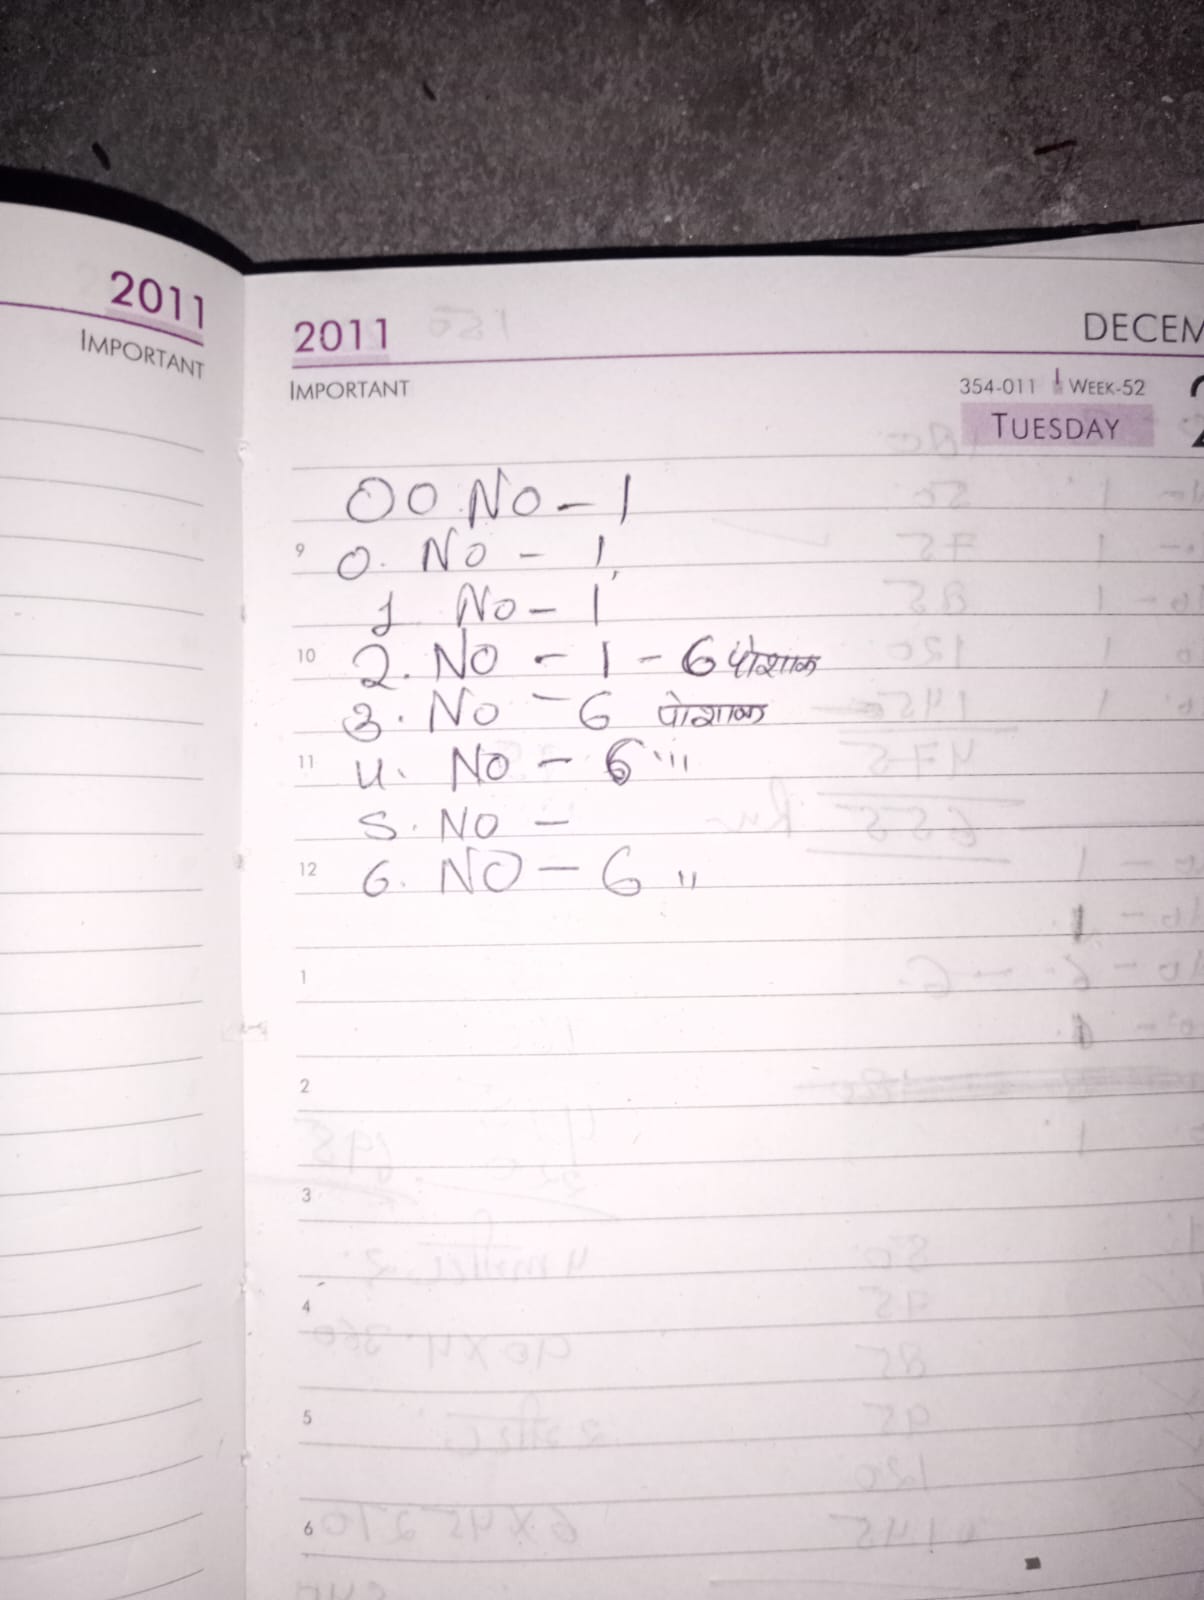 2011
IMPORTANT
2011
DECEM
IMPORTANT
354-011 WEEK-52
TUESDAY
00 No - 1
9
0. No - 1
1 No - 1
10
2. No - 1 - 6 पोशाक
3. No - 6 पोशाक
11
4. No - 6 '''
5. No -
12
6. No - 6 "
1
2
3
4
5
6